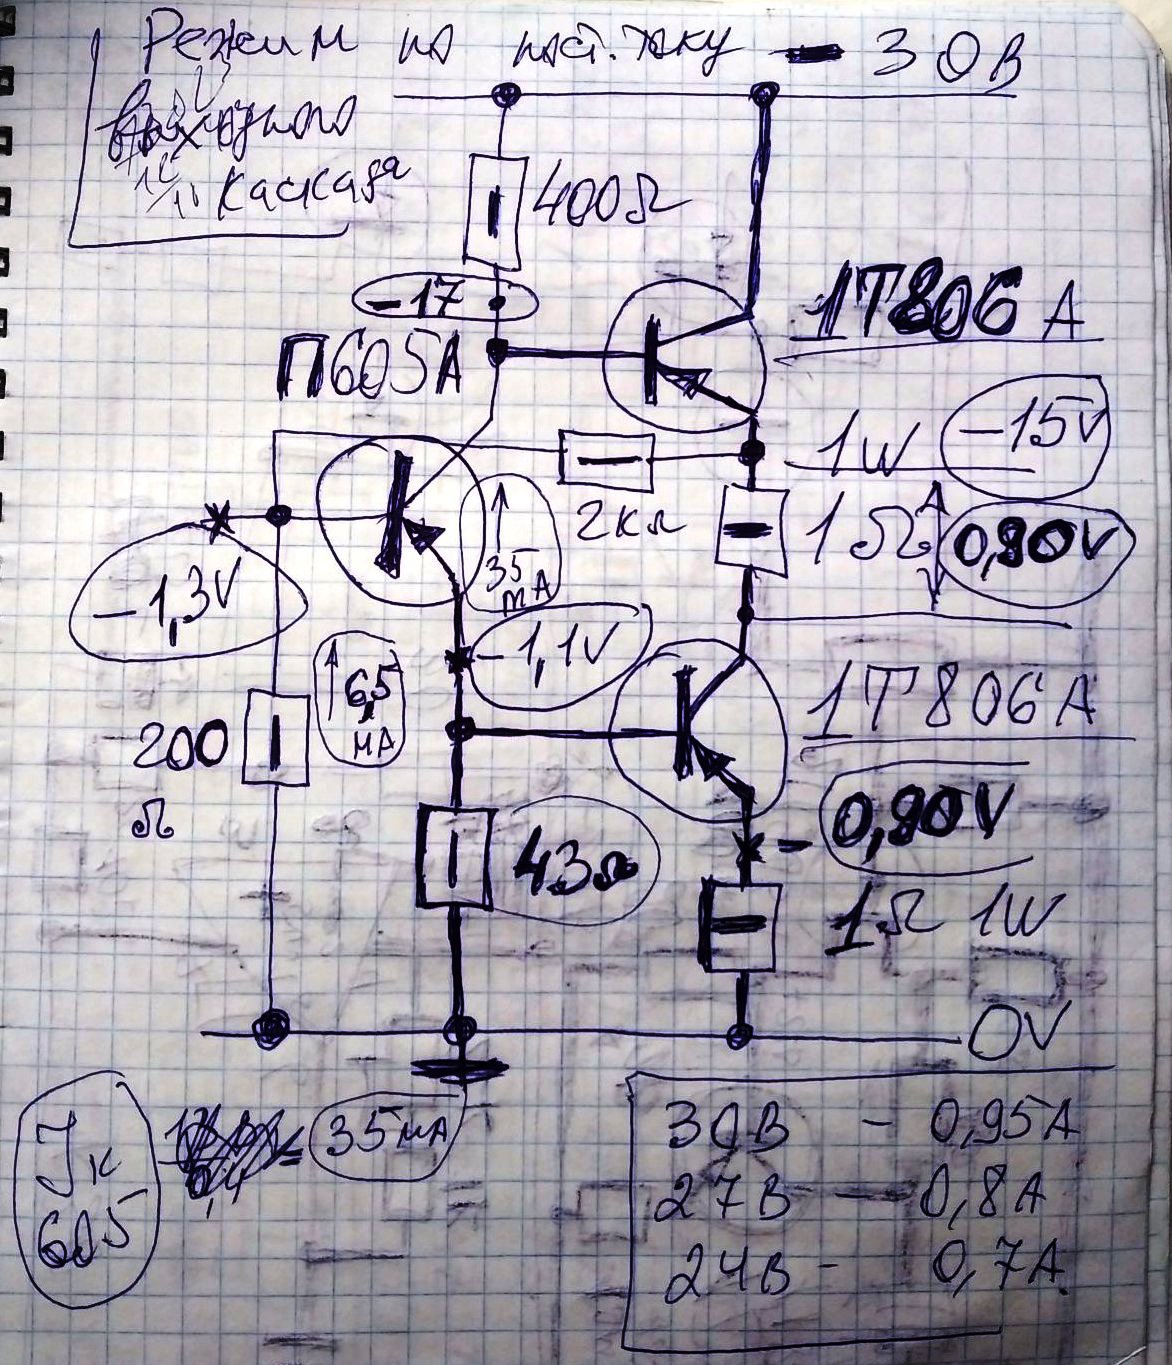 Режим по пост. току - 30В
выходного
каскада
400Ω
-17
П605А
1T806 A
1W -15V
2кΩ
1Ω 0,90V
35 mA
-1,3V
-1,1V
6,5 мА
1T806A
200 Ω
0,90V
43Ω
1Ω 1W
0V
Iк 605 = 35мА
30В - 0,95А
27В - 0,8А
24В - 0,7А